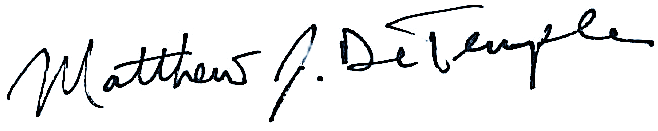 Matthew J. DeTemple